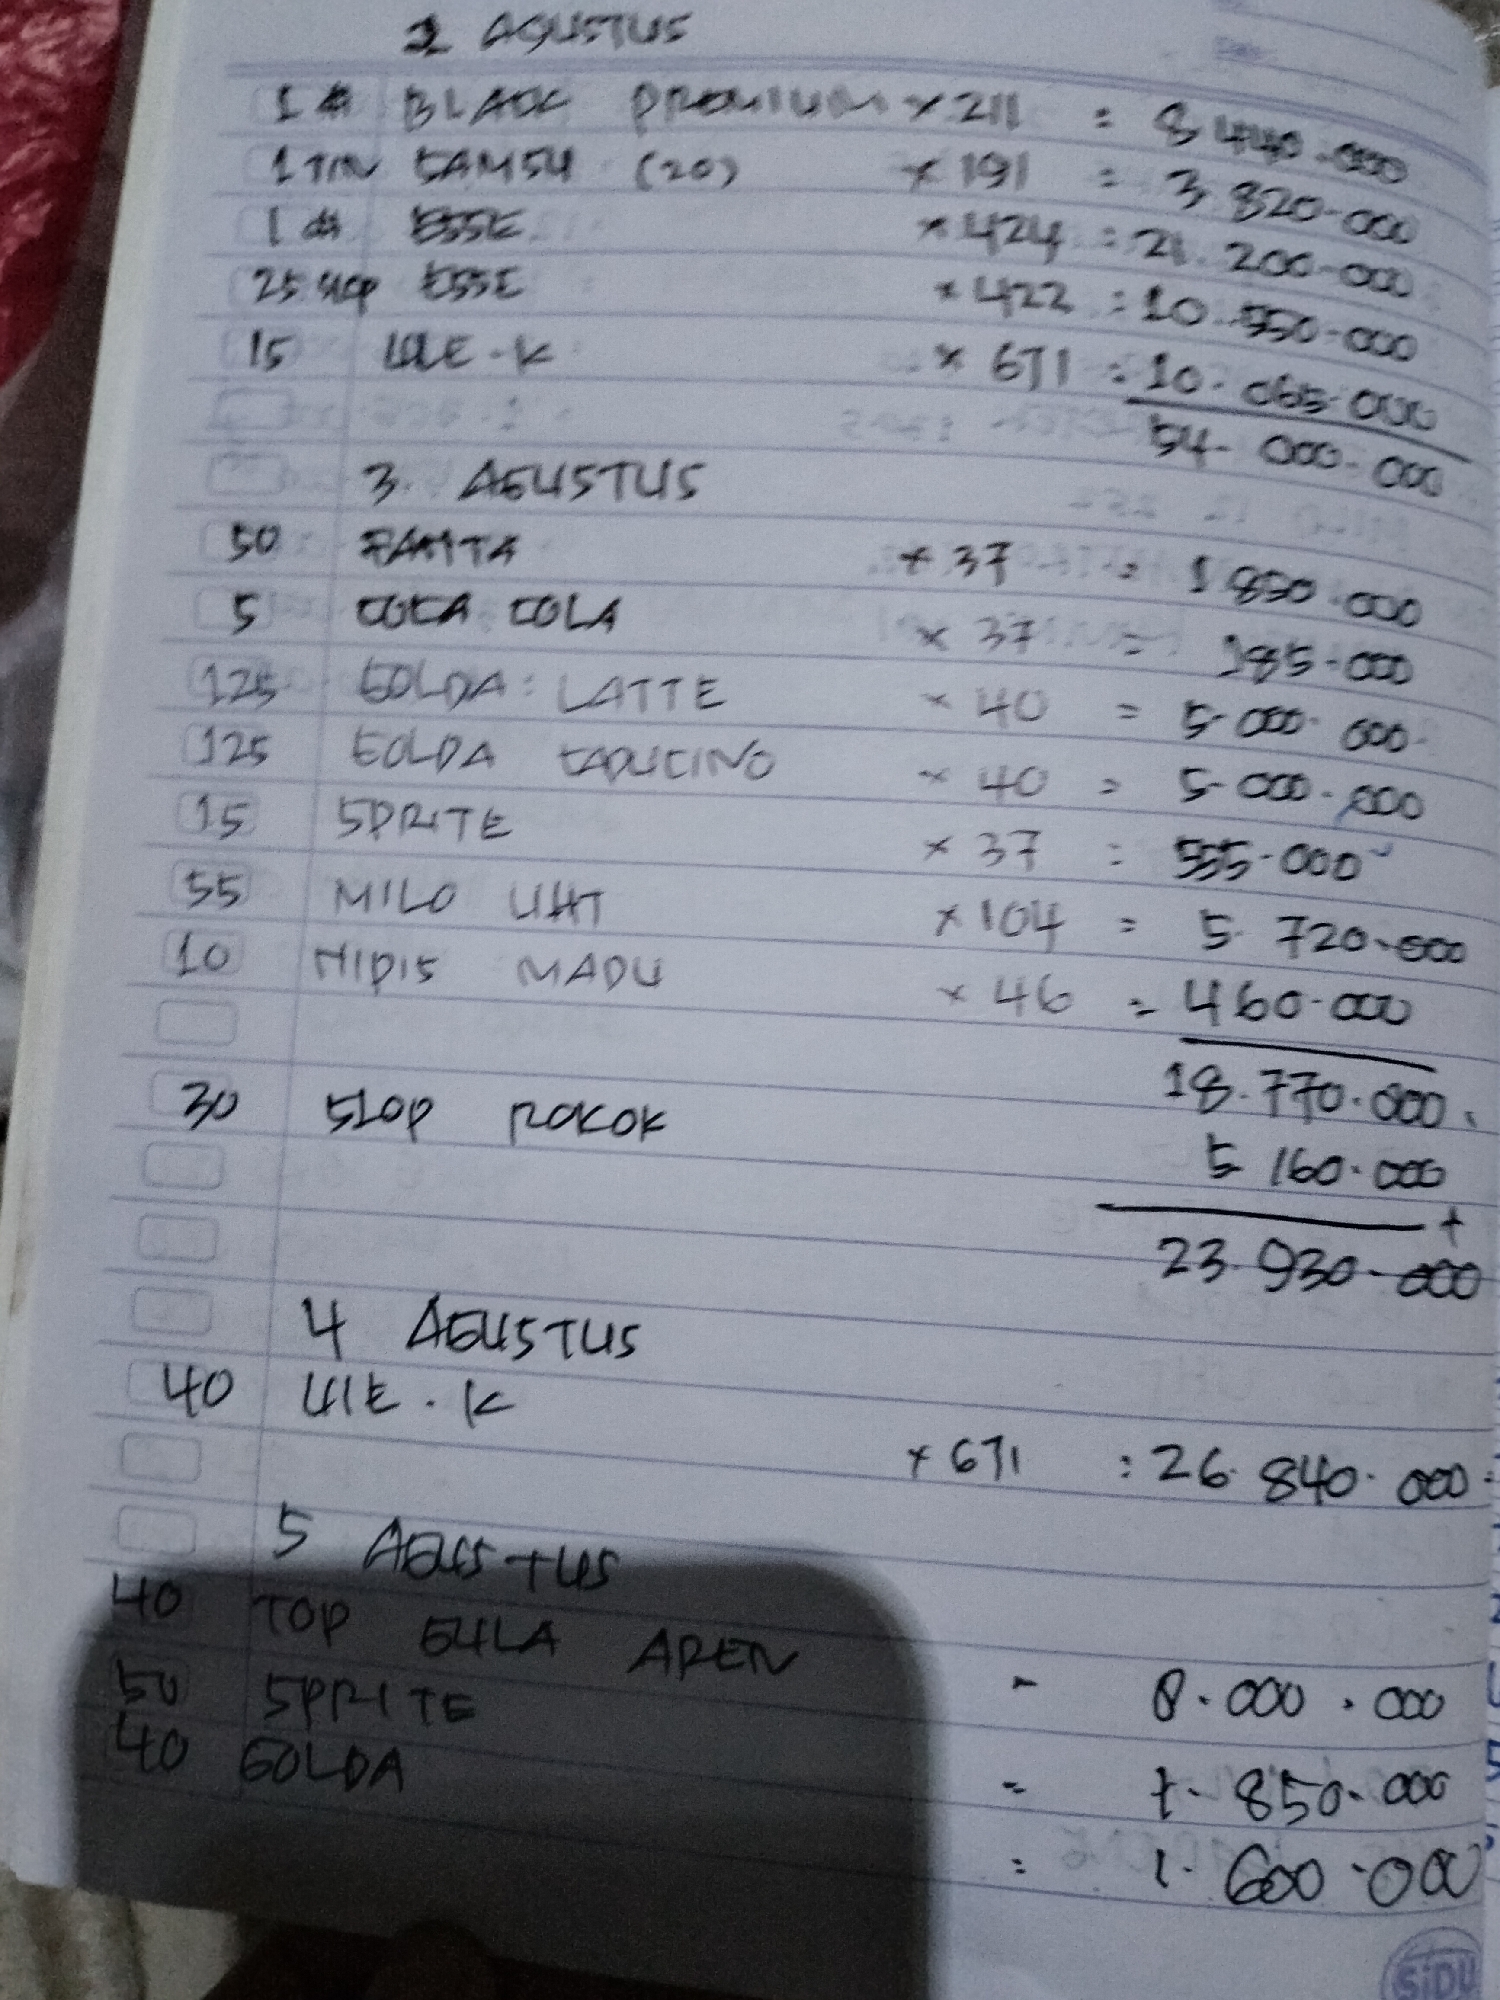 2 AGUSTUS
1 # BLACK PREMIUM × 211 = 8.440.000
1 TIN SAMSU (20) × 191 = 3.820.000
1 # ESSE × 424 = 21.200.000
25 SLOP ESSE × 422 = 10.550.000
15 × 671 = 10.065.000
54.000.000
3. AGUSTUS
50 FANTA × 37 = 1.850.000
5 COCA COLA × 37 = 185.000
125 GOLDA : LATTE × 40 = 5.000.000
125 GOLDA CAPUCINO × 40 = 5.000.000
15 SPRITE × 37 = 555.000
55 MILO UHT × 104 = 5.720.000
10 NIPIS MADU × 46 = 460.000
18.770.000
30 SLOP ROKOK 5.160.000
+
23.930.000
4 AGUSTUS
40 × 671 = 26.840.000
5 AGUSTUS
40 TOP GULA AREN = 8.000.000
50 SPRITE = 1.850.000
40 GOLDA = 1.600.000
SIDU